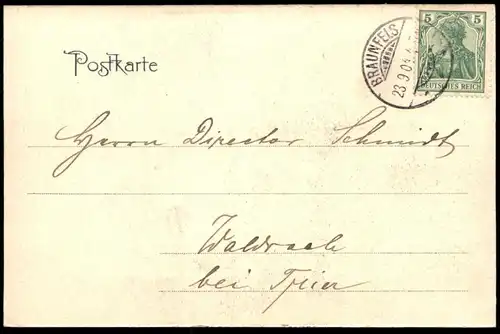 Postkarte
BRAUNFELS
23.9.04
5 5
DEUTSCHES REICH
Herrn Director Schmidt
Waldrach
bei Trier